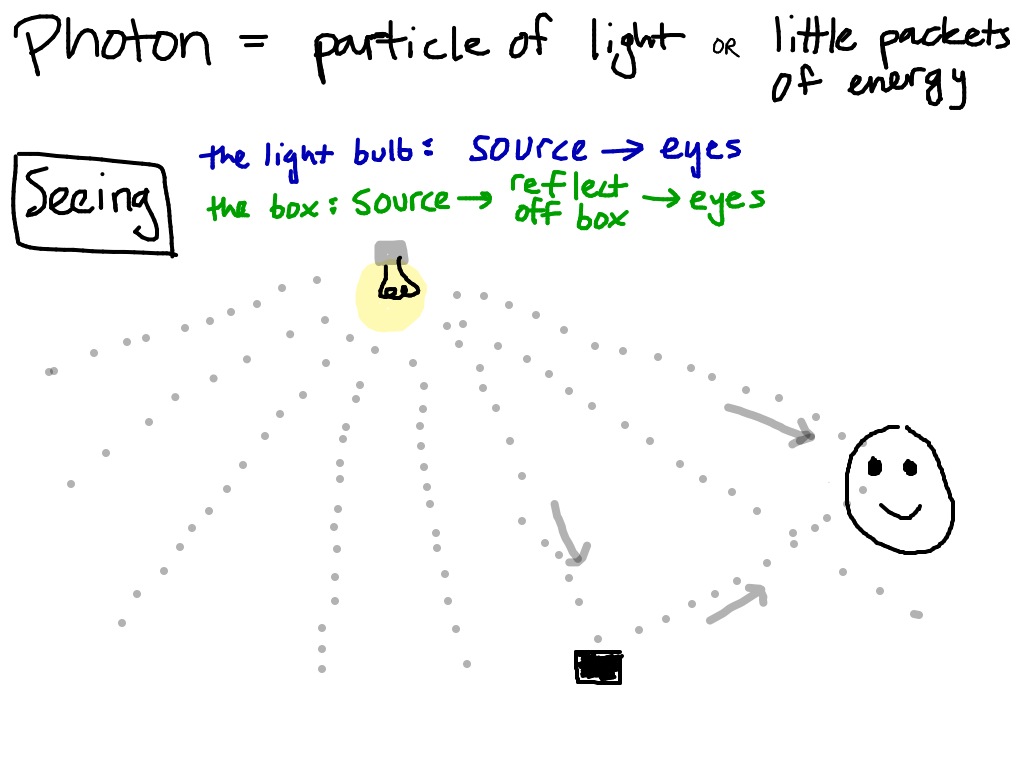 Photon = particle of light OR little packets
of energy
Seeing
the light bulb: source → eyes
the box: source → reflect off box → eyes